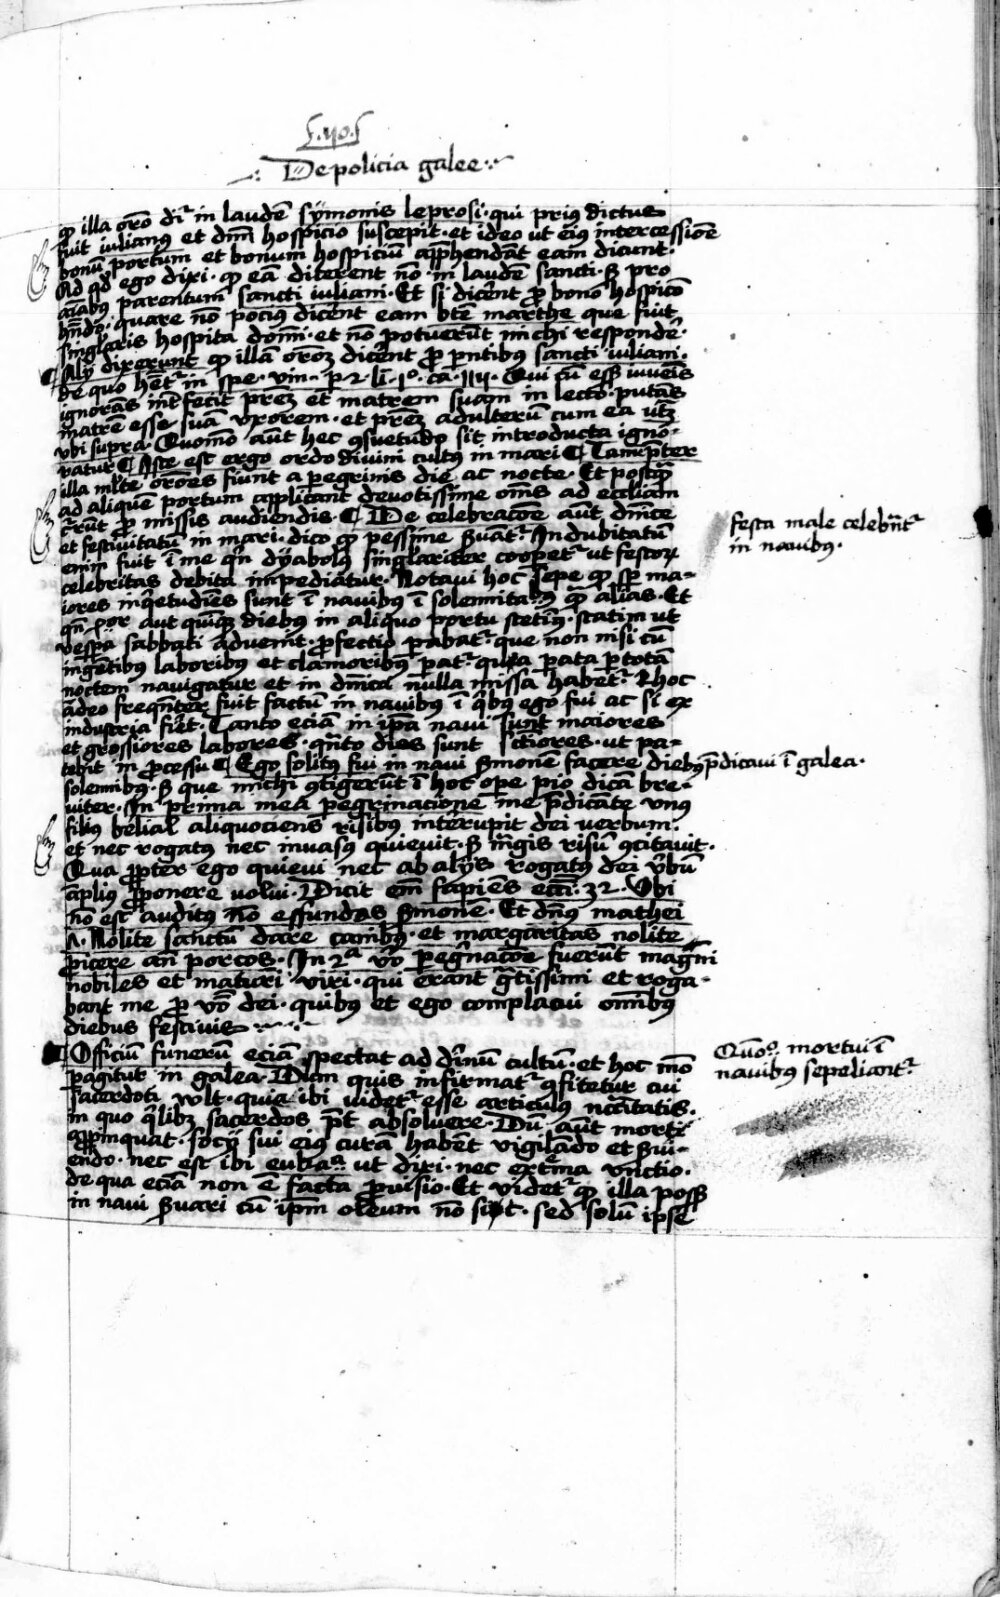 De policia galee
qͦ illa orō dr̄ in laudē sÿmonis leprosi · qui prius dictus
fuit iulianus et dnm̄ hospicio suscepit · et ideo ut eius intercessionē
bonū portum et bonum hospiciū app̄hendāt eam dicunt ·
Ad qd̄ ego dixi · qͦ eā dicerent nō in laudē sancti · s̄ pro
aīabus parentum sancti iuliani · Et si dicēnt ꝓ bono hospicō
hn̄do · quare nō pocius dicēnt eam btē marthe que fuit
singl̄aris hospita domī · et nō potuerūt michi respondē ·
¶ Alij dixerunt qͦ illā orōeꝫ dicēnt ꝓ pn̄tibus sancti iuliani ·
de quo hēt̄ in spe · vin · p · 2 · li · · cā · · Qui cū esset iuvēis
ignorās int̄fecit pr̄eꝫ et matrem suam in lecto · putās
matrē esse suā uxorem · et pr̄eꝫ adulterū cum ea
ubi supra · Quomō aūt hec ꝯsuetudo sit introducta igno-
ratur ¶ Iste est ergo ordo divini cultus in mari ¶ Tamꝓpter
illa ml̄te orōes fiunt a pegrinis die ac nocte · Et postqͣ
ad aliquē portum applicant devotissime oms̄ ad eccliam
cr̄rūt ꝓ missis audiendis · ¶ De celebracōe aūt dn̄ice
et festivitatū in mari · dico qͦ pessime s̄vāt̄ · Indubitatū
enim fuit ī me qn̄ dyabolus singl̄ariter cooperet̄ ut festoꝝ
celebritas debita impediatur · Notavi hoc sepe qͦ sp̄ ma-
iores inq̄etudīes sunt ī navibus ī solennitatibus qͣ alias · Et
qn̄ aut quīqꝫ diebus in aliquo portu stetimus · statim ut
vesꝑa sabbati advenit · ꝓfectio ꝑabat̄ · que non nisi cū
ingentibus laboribus et clamoribus pat̄ · qua pata ꝑ totā
noctem navigatur et in dn̄ica nulla missa habet̄ · hoc
adeo freqn̄ter fuit factū in navibus ī qͥbus ego fui ac si ex
industria fier̄t · Tanto eciā in ip̄a navi sunt maiores
et grossiores labores · qn̄to dies sunt sc̄tiores · ut pa-
tebit in ꝓcessu ¶ Ego solitus fui in navi s̄monem facere diebus
solennibus · s̄ que michi ꝯtigerūt ī hoc oꝑe pio dicā bre-
viter · In prima mea pegrinatione me p̄dicāte unus
filius belial aliquociens risibus intērupit dei verbum ·
et nec rogatus nec invasus quievit · s̄ magis risū ꝯcitavit ·
Qua ꝓpter ego quievi nec ab alijs rogatus dei v̄bū
āplius ꝓponere volui · Dicit em̄ sapiēs ecc̄i · 32 · Ubi
nō est auditus nō effundas s̄monē · Et dn̄us mathei
Nolite sanctū dare canibus · et margaritas nolite
ꝓicere an̄ porcos · In 2ᵃ v̄o ꝑegnācōe fuerūt magni
nobiles et maturi viri · qui erant grā̄tissimi et roga-
bant me ꝓ v̄bo dei · quibus et ego complacui omnibus
diebus festivis
¶ Officiū funerū eciā spectat ad divinū cultū · et hoc mō
ꝑagitur in galea · Dum quis infirmat̄ ꝯfitetur cui
sacerdoti vult · quia ibi videt̄ esse articulus nc̄itatis ·
in quo qͥlibꝫ sacerdos pt̄ absolvere · Dū aūt morti
appinquat · socij sui eius curā habēt vigilādo et s̄vi-
endo · nec est ibi eukaᵃ ut dixi · nec extrema unctio ·
de qua eciā non ē facta ꝓvisio · Et videt̄ qͦ illa posset
in navi s̄vari cū ip̄m oleum nō sit · sed solū ipse
festa male celebrant̄
in navibus ·
p̄dicavi ī galea ·
Quōᵒ mortui ī
navibus sepeliant̄ ·